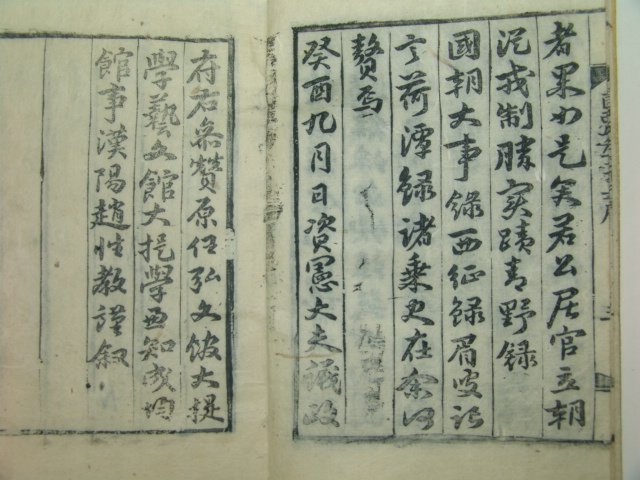 者果如是矣若公居官立朝
戎制勝實蹟青野錄
國朝大事錄西征錄眉叟記
言荷潭錄諸乘史在余何
贅焉
癸酉九月日資憲大夫議政
府右叅贊原任弘文館大提
學藝文館大提學兼知成均
館事漢陽趙性教謹敘